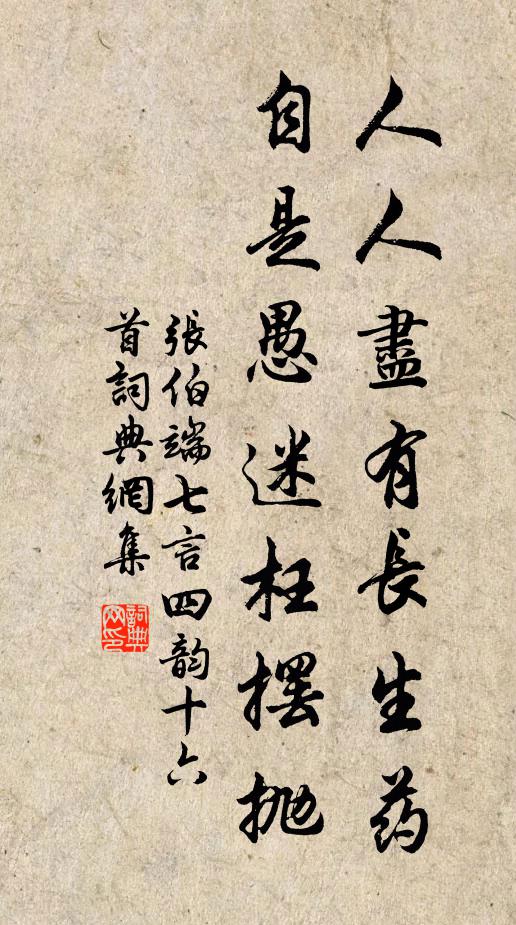 人人盡有長生药
自是愚迷枉擺抛
張伯端七言四韵十六
首詞典網集
詞典
网印